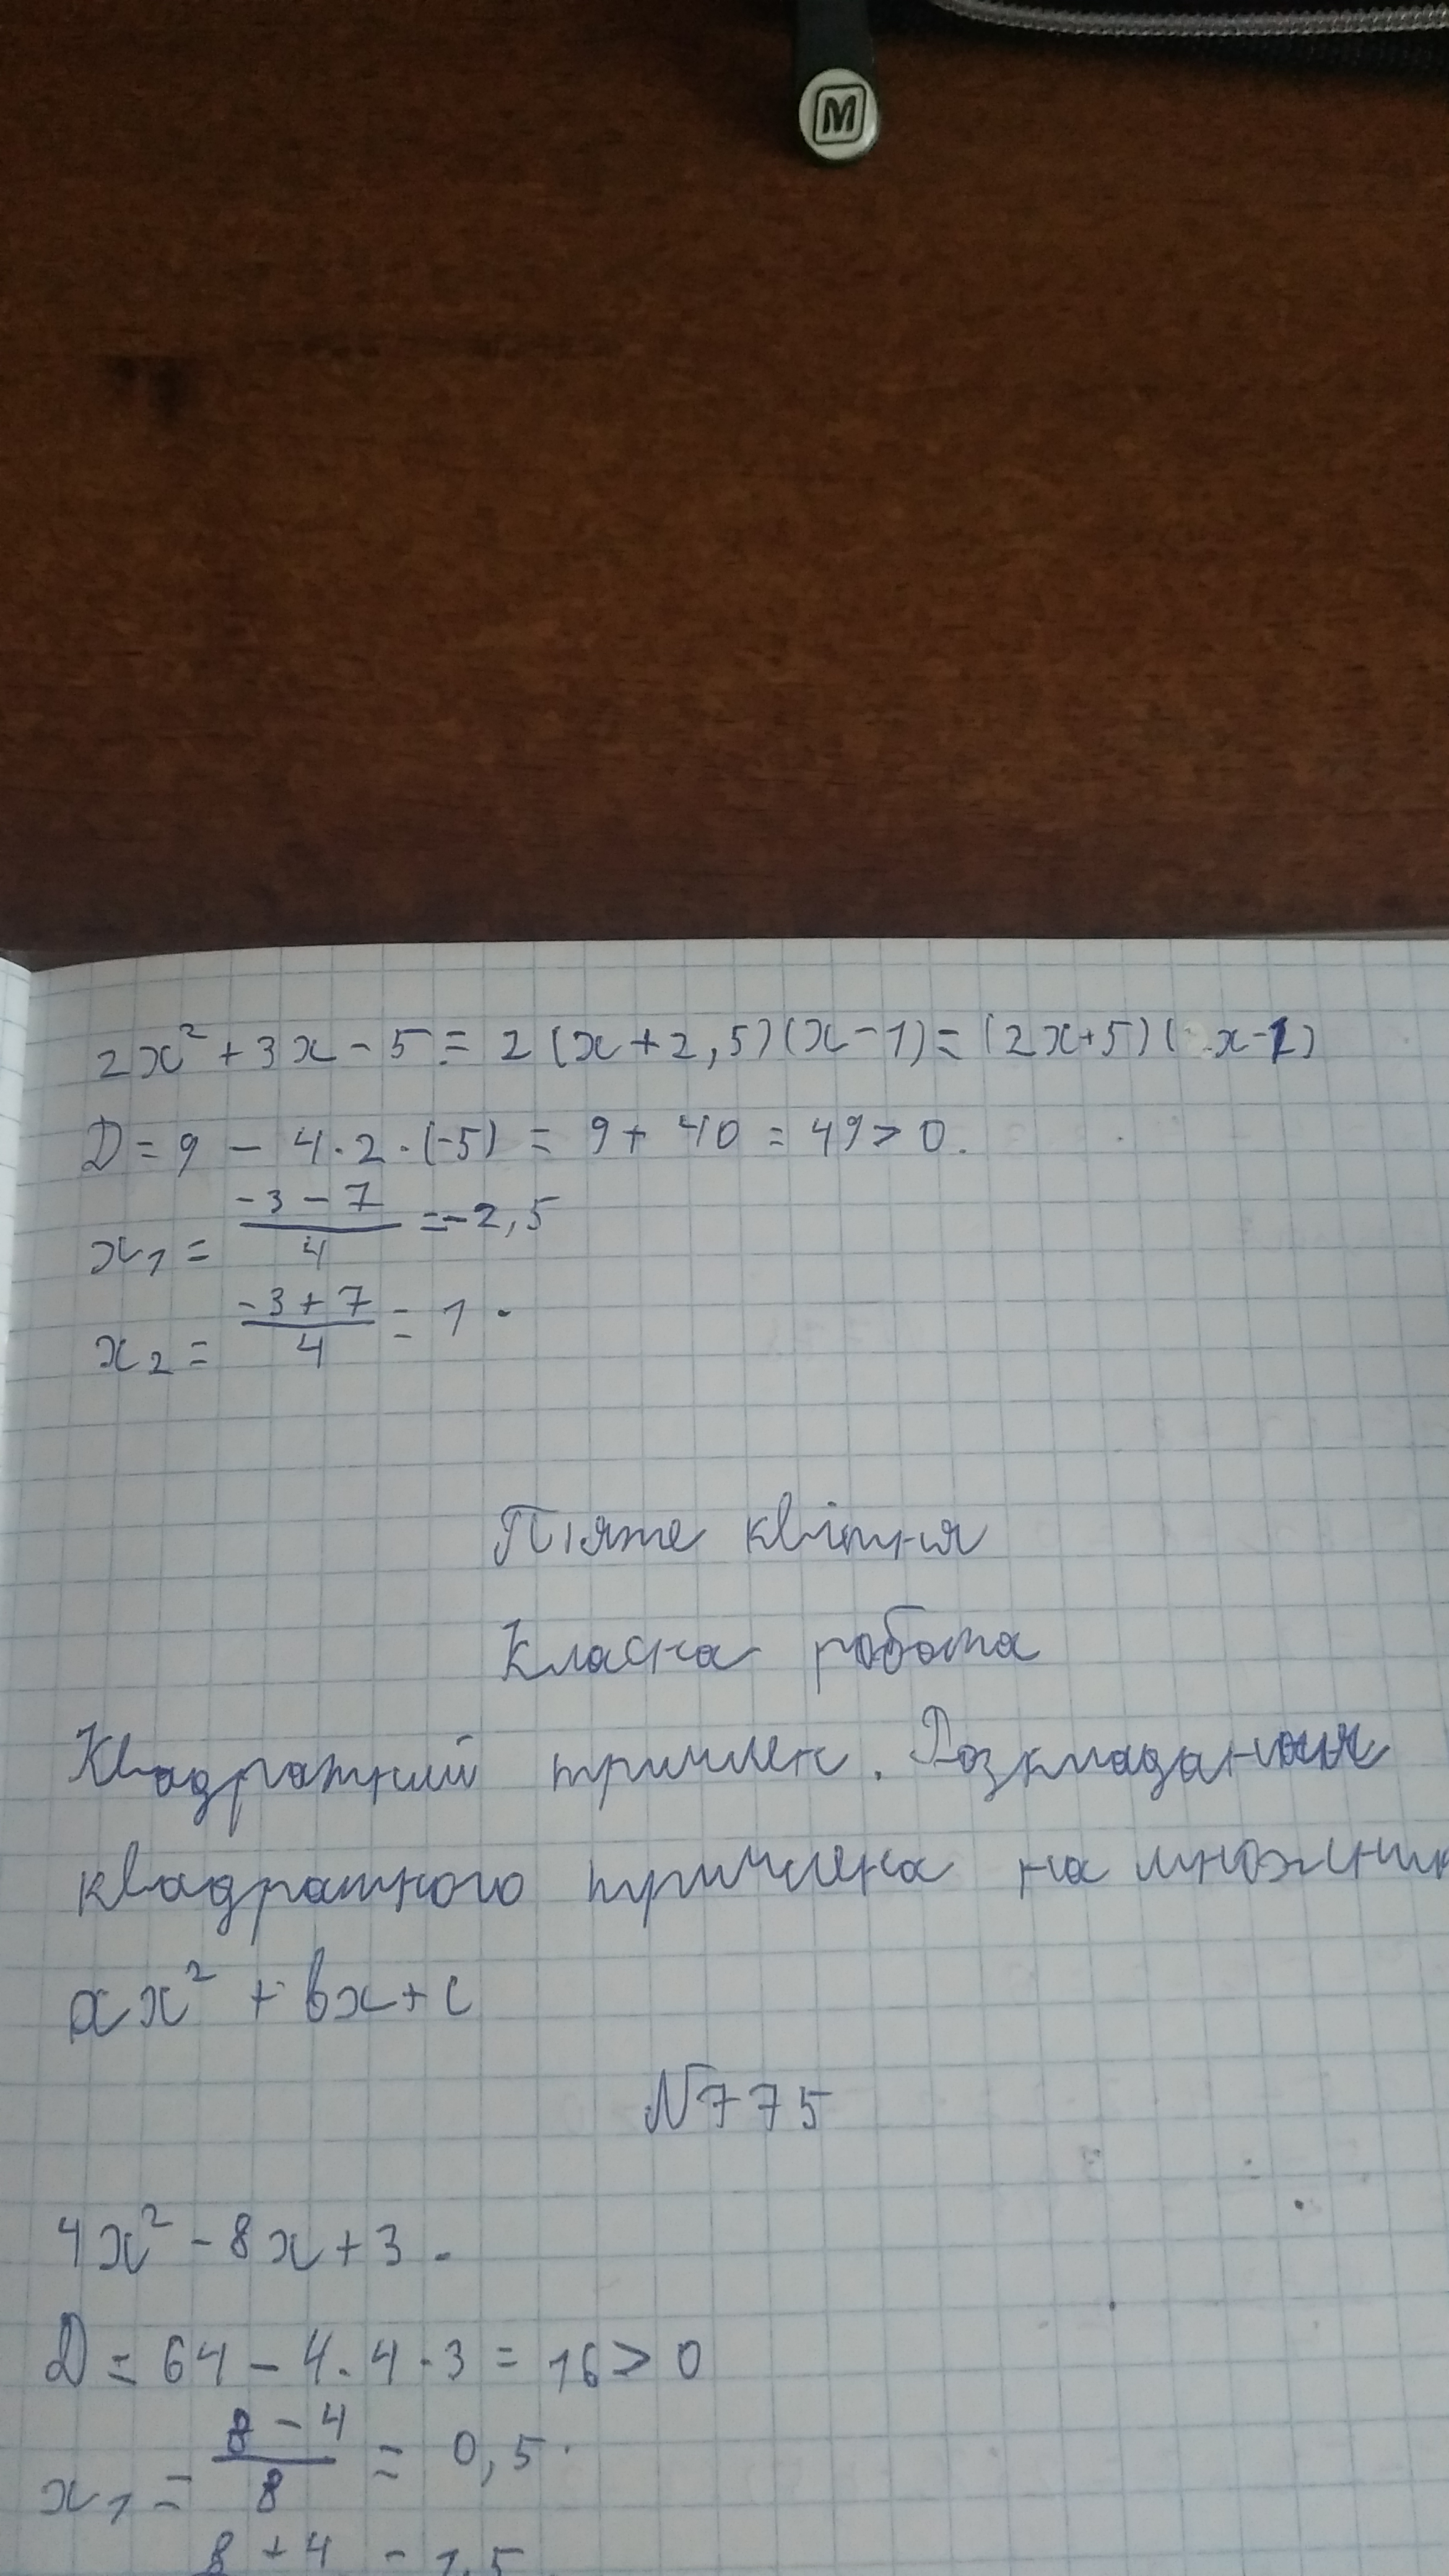 M
2x² + 3x - 5 = 2(x + 2,5)(x - 1) = (2x + 5)(x - 1)
D = 9 - 4 · 2 · (-5) = 9 + 40 = 49 > 0.
x₁ = (-3 - 7)/4 = -2,5
x₂ = (-3 + 7)/4 = 1.
П'яте квітня
Класна робота
Квадратний тричлен. Розкладання
квадратного тричлена на множник
ax² + bx + c
N775
4x² - 8x + 3.
D = 64 - 4 · 4 · 3 = 16 > 0
x₁ = (8 - 4)/8 = 0,5.
8 + 4 = 1,5